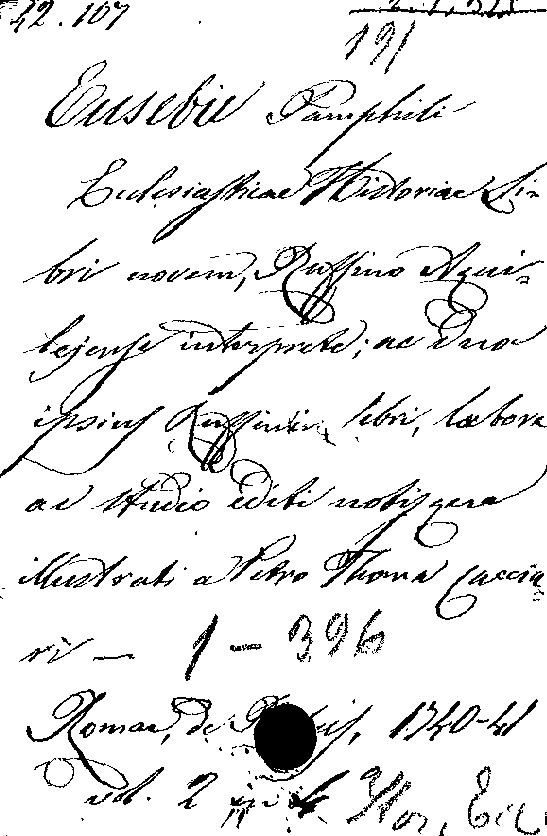 42.107
191
Eusebii Pamphili
Ecclesiasticae Historiae Li-
bri novem, Ruffino Aqui-
lejense interprete; ac duo
ipsius Ruffini libri, labore
ac studio editi notisque
illustrati a Petro Thoma Caccia-
ri — 1 — 396
Romae, de 1740-41
vol. 2 in 4 Stor. Ecc.